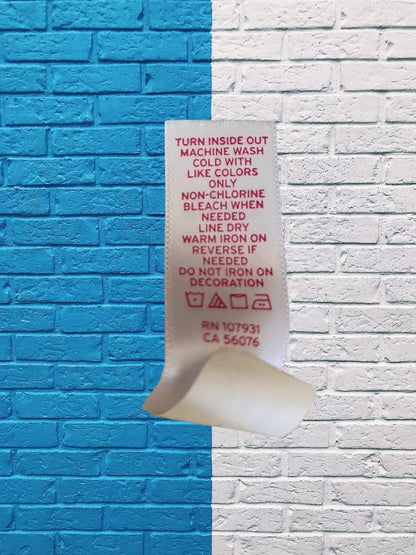 TURN INSIDE OUT
MACHINE WASH
COLD WITH
LIKE COLORS
ONLY
NON-CHLORINE
BLEACH WHEN
NEEDED
LINE DRY
WARM IRON ON
REVERSE IF
NEEDED
DO NOT IRON ON
DECORATION
RN 107931
CA 56076